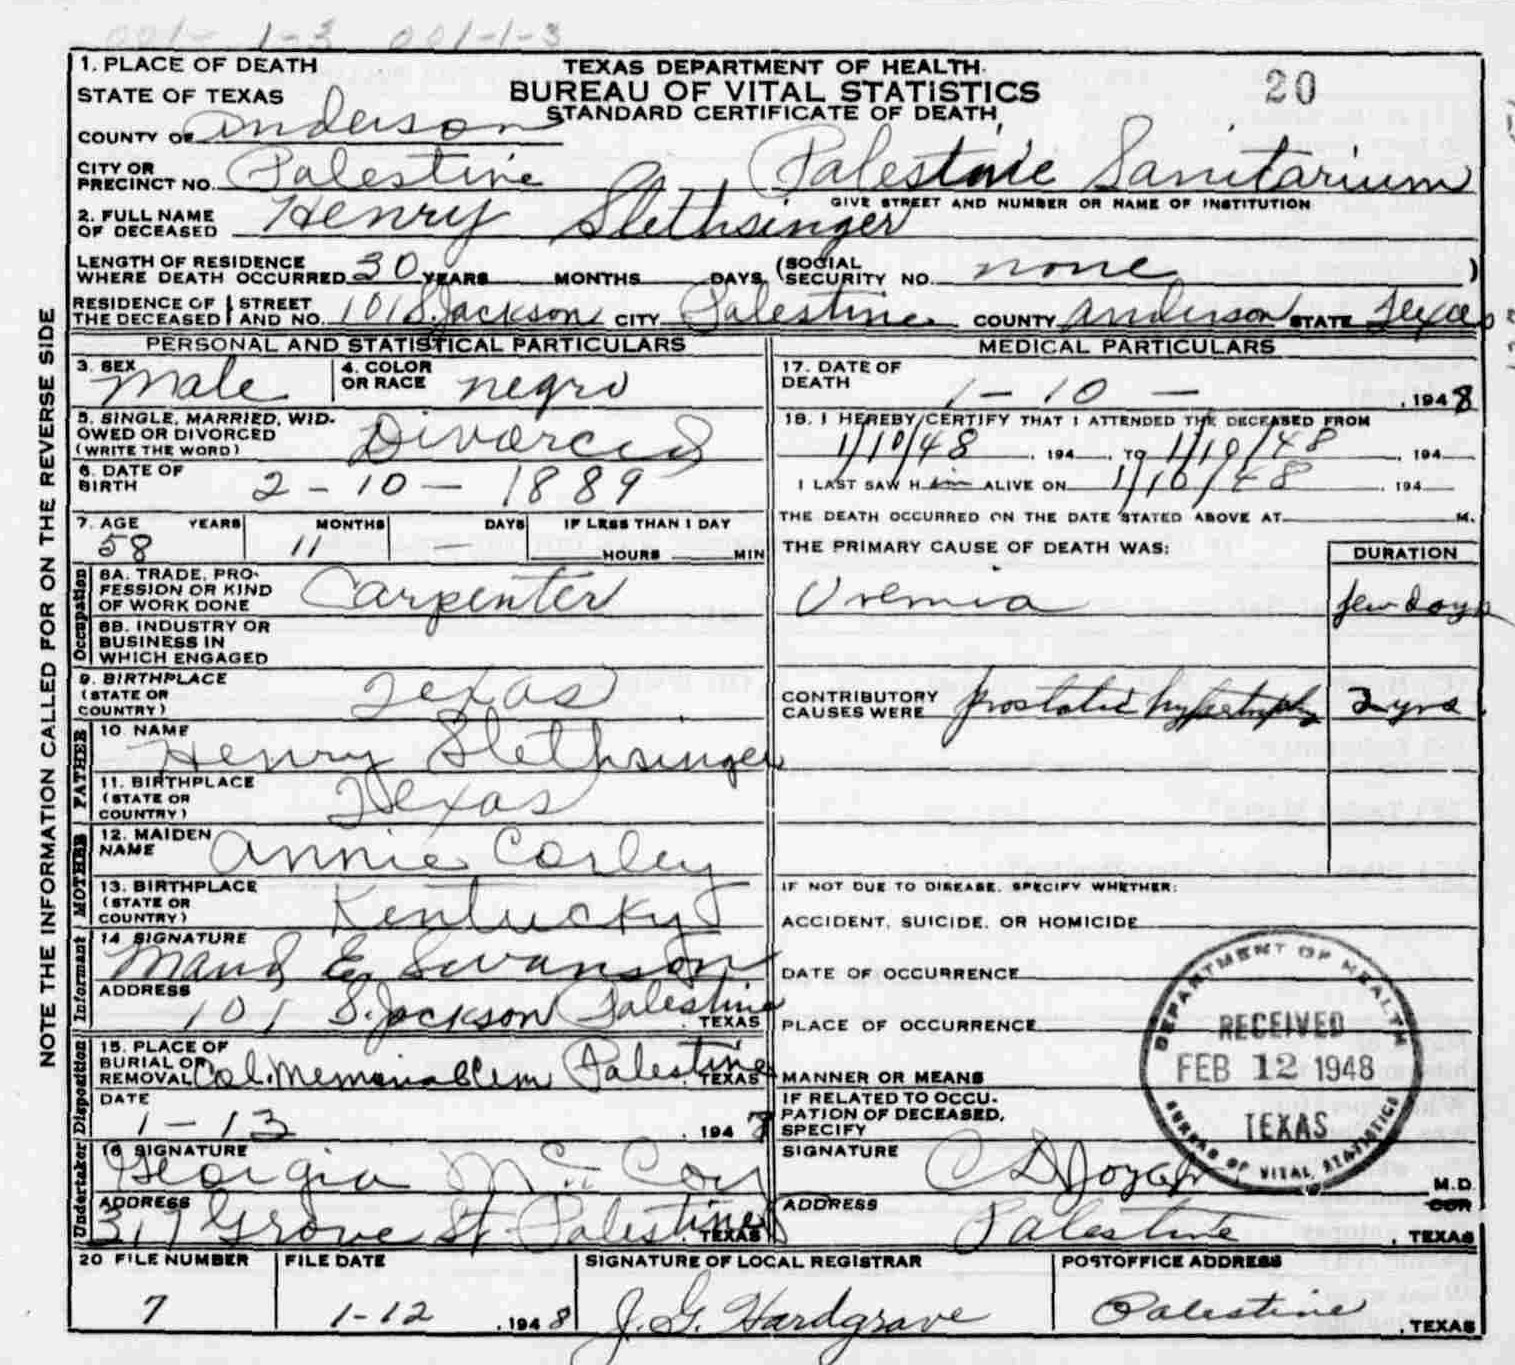 001- 1-3 001-1-3
1. PLACE OF DEATH
STATE OF TEXAS
COUNTY OF Anderson
TEXAS DEPARTMENT OF HEALTH
BUREAU OF VITAL STATISTICS
STANDARD CERTIFICATE OF DEATH
20
CITY OR PRECINCT NO. Palestine Palestine Sanitarium
GIVE STREET AND NUMBER OR NAME OF INSTITUTION
2. FULL NAME OF DECEASED Henry Slethsinger
LENGTH OF RESIDENCE WHERE DEATH OCCURRED 30 YEARS MONTHS DAYS (SOCIAL SECURITY NO. none )
RESIDENCE OF THE DECEASED STREET AND NO. 101 S. Jackson CITY Palestine COUNTY Anderson STATE Texas
PERSONAL AND STATISTICAL PARTICULARS
3. SEX Male
4. COLOR OR RACE negro
5. SINGLE, MARRIED, WIDOWED OR DIVORCED (WRITE THE WORD) Divorced
6. DATE OF BIRTH 2-10-1889
7. AGE YEARS MONTHS DAYS IF LESS THAN 1 DAY
58 11 — HOURS MIN
Occupation
8A. TRADE, PROFESSION OR KIND OF WORK DONE Carpenter
8B. INDUSTRY OR BUSINESS IN WHICH ENGAGED
9. BIRTHPLACE (STATE OR COUNTRY) Texas
FATHER
10. NAME Henry Slethsinger
11. BIRTHPLACE (STATE OR COUNTRY) Texas
MOTHER
12. MAIDEN NAME Annie Corley
13. BIRTHPLACE (STATE OR COUNTRY) Kentucky
Informant
14 SIGNATURE Maud E. Swanson
ADDRESS 101 S. Jackson Palestine, TEXAS
Disposition
15. PLACE OF BURIAL OR REMOVAL Col. Memorial Cem Palestine, TEXAS
DATE 1-13, 1948
Undertaker
16 SIGNATURE Georgia McCoy
ADDRESS 317 Grove St. Palestine, TEXAS
MEDICAL PARTICULARS
17. DATE OF DEATH 1-10-, 1948
18. I HEREBY CERTIFY THAT I ATTENDED THE DECEASED FROM
1/10/48, 194 , TO 1/10/48, 194
I LAST SAW H im ALIVE ON 1/10/48, 194
THE DEATH OCCURRED ON THE DATE STATED ABOVE AT M.
THE PRIMARY CAUSE OF DEATH WAS: DURATION
Uremia few days
CONTRIBUTORY CAUSES WERE prostatic hypertrophy 2 yrs.
IF NOT DUE TO DISEASE, SPECIFY WHETHER:
ACCIDENT, SUICIDE, OR HOMICIDE
DATE OF OCCURRENCE
PLACE OF OCCURRENCE
MANNER OR MEANS
IF RELATED TO OCCUPATION OF DECEASED, SPECIFY
DEPARTMENT OF HEALTH
RECEIVED
FEB 12 1948
TEXAS
BUREAU OF VITAL STATISTICS
SIGNATURE C D M.D.
ADDRESS Palestine, TEXAS
20 FILE NUMBER 7
FILE DATE 1-12, 1948
SIGNATURE OF LOCAL REGISTRAR J. G. Hardgrave
POSTOFFICE ADDRESS Palestine, TEXAS
NOTE THE INFORMATION CALLED FOR ON THE REVERSE SIDE